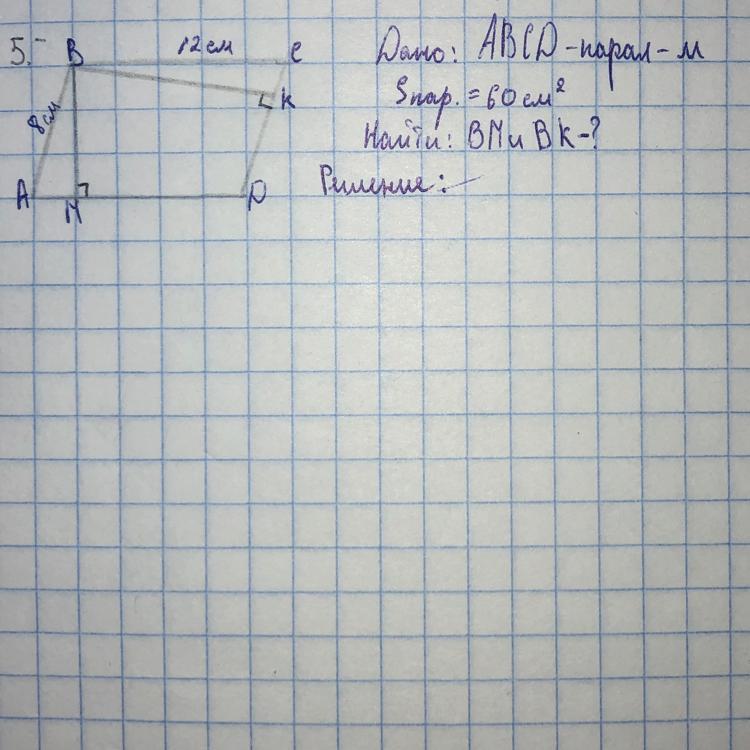 5.
B 12см C
8см
K
A M D
Дано: ABCD-парал-м
Sпар. = 60 см²
Найти: BM и BK-?
Решение: